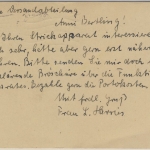 Versandabteilung
Anni Bertling!
Ihren Strickapparat interessiere
sehr, hätte aber gern erst nähere
Bitte senden Sie mir doch
klärende Broschüre über die Funktion
Apparates. Bezahle gern die Portokosten.
Mit frdl. Gruß
Frau L. Harms